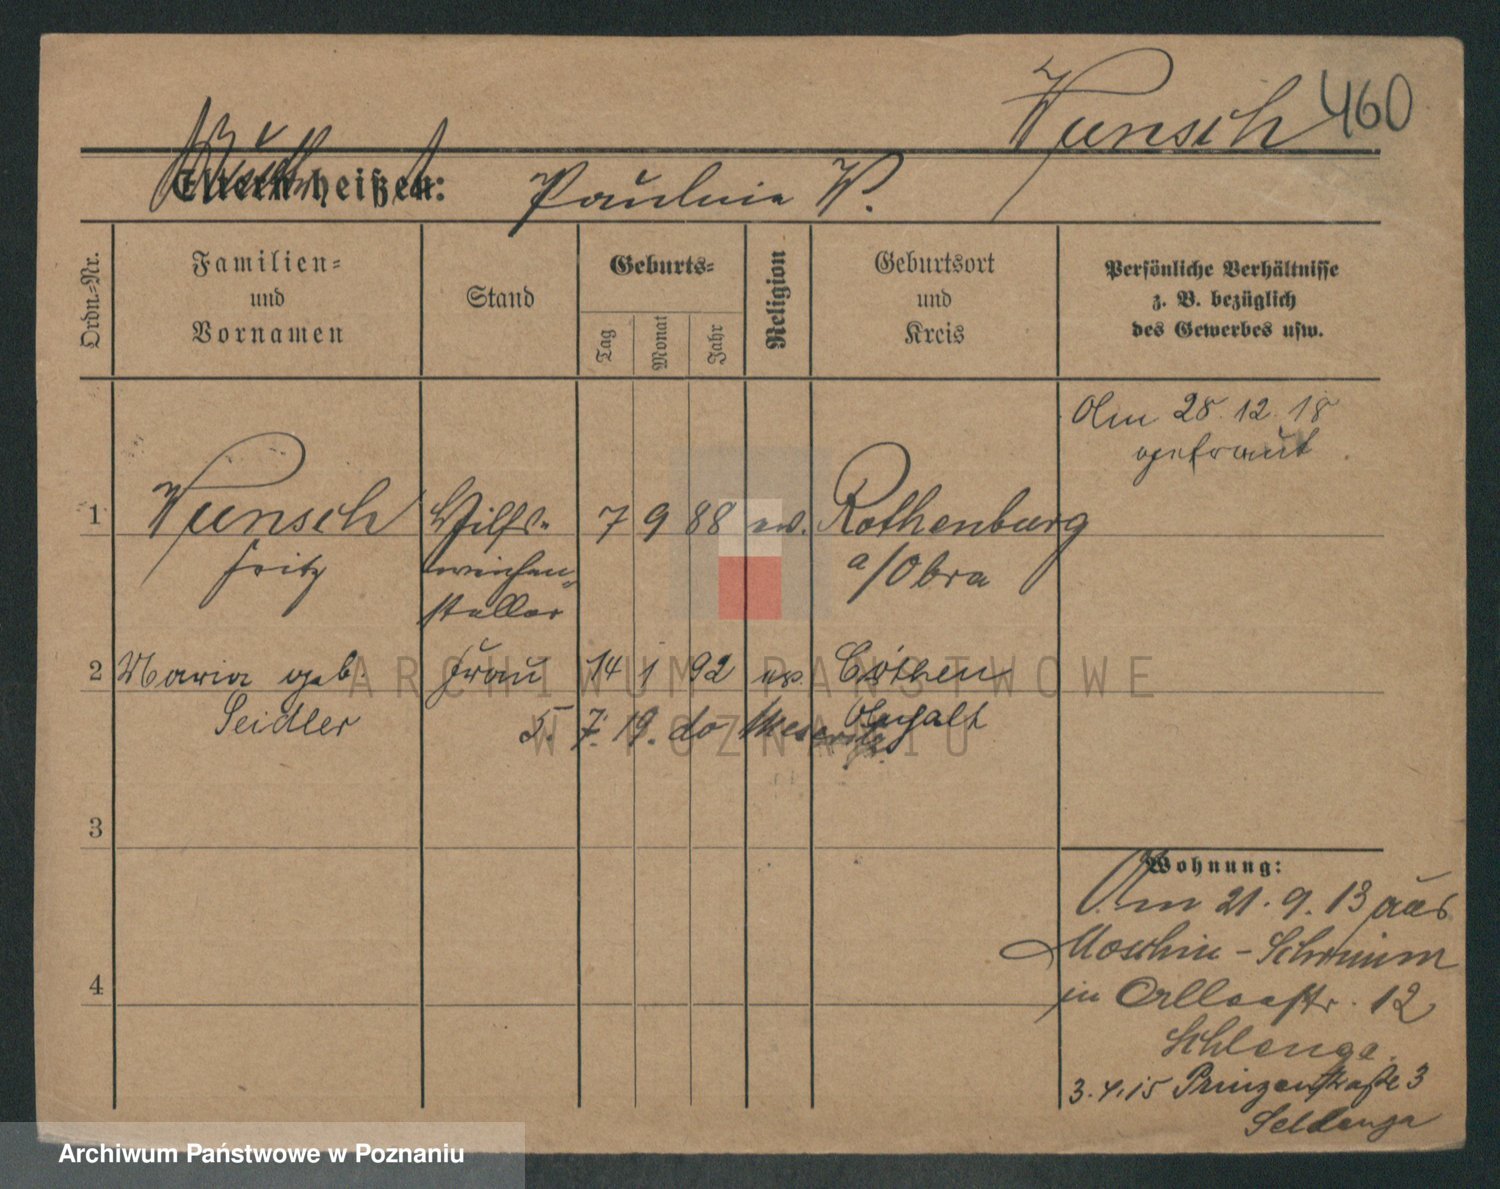 Wunsch 460
Eltern heißen: Paulnia W.
Ordn.-Nr.
Familien-
und
Vornamen
Stand
Geburts-
Tag
Monat
Jahr
Religion
Geburtsort
und
Kreis
Persönliche Verhältnisse
z. B. bezüglich
des Gewerbes usw.
Am 28. 12. 18
getraut.
1 Wunsch Hilfs- 7 9 88 ev. Rothenburg
Fritz weichen- a/Obra
steller
2 Maria geb. Frau 14 1 92 ev. Cöthen
Seidler Anhalt
5. 7. 19. do Meseritz
3
4
Wohnung:
Am 21. 9. 13 aus
Moschin - Schrimm
in 12
3. 4. 15 Prinzenstraße 3
ARCHIWUM PAŃSTWOWE
W POZNANIU
Archiwum Państwowe w Poznaniu